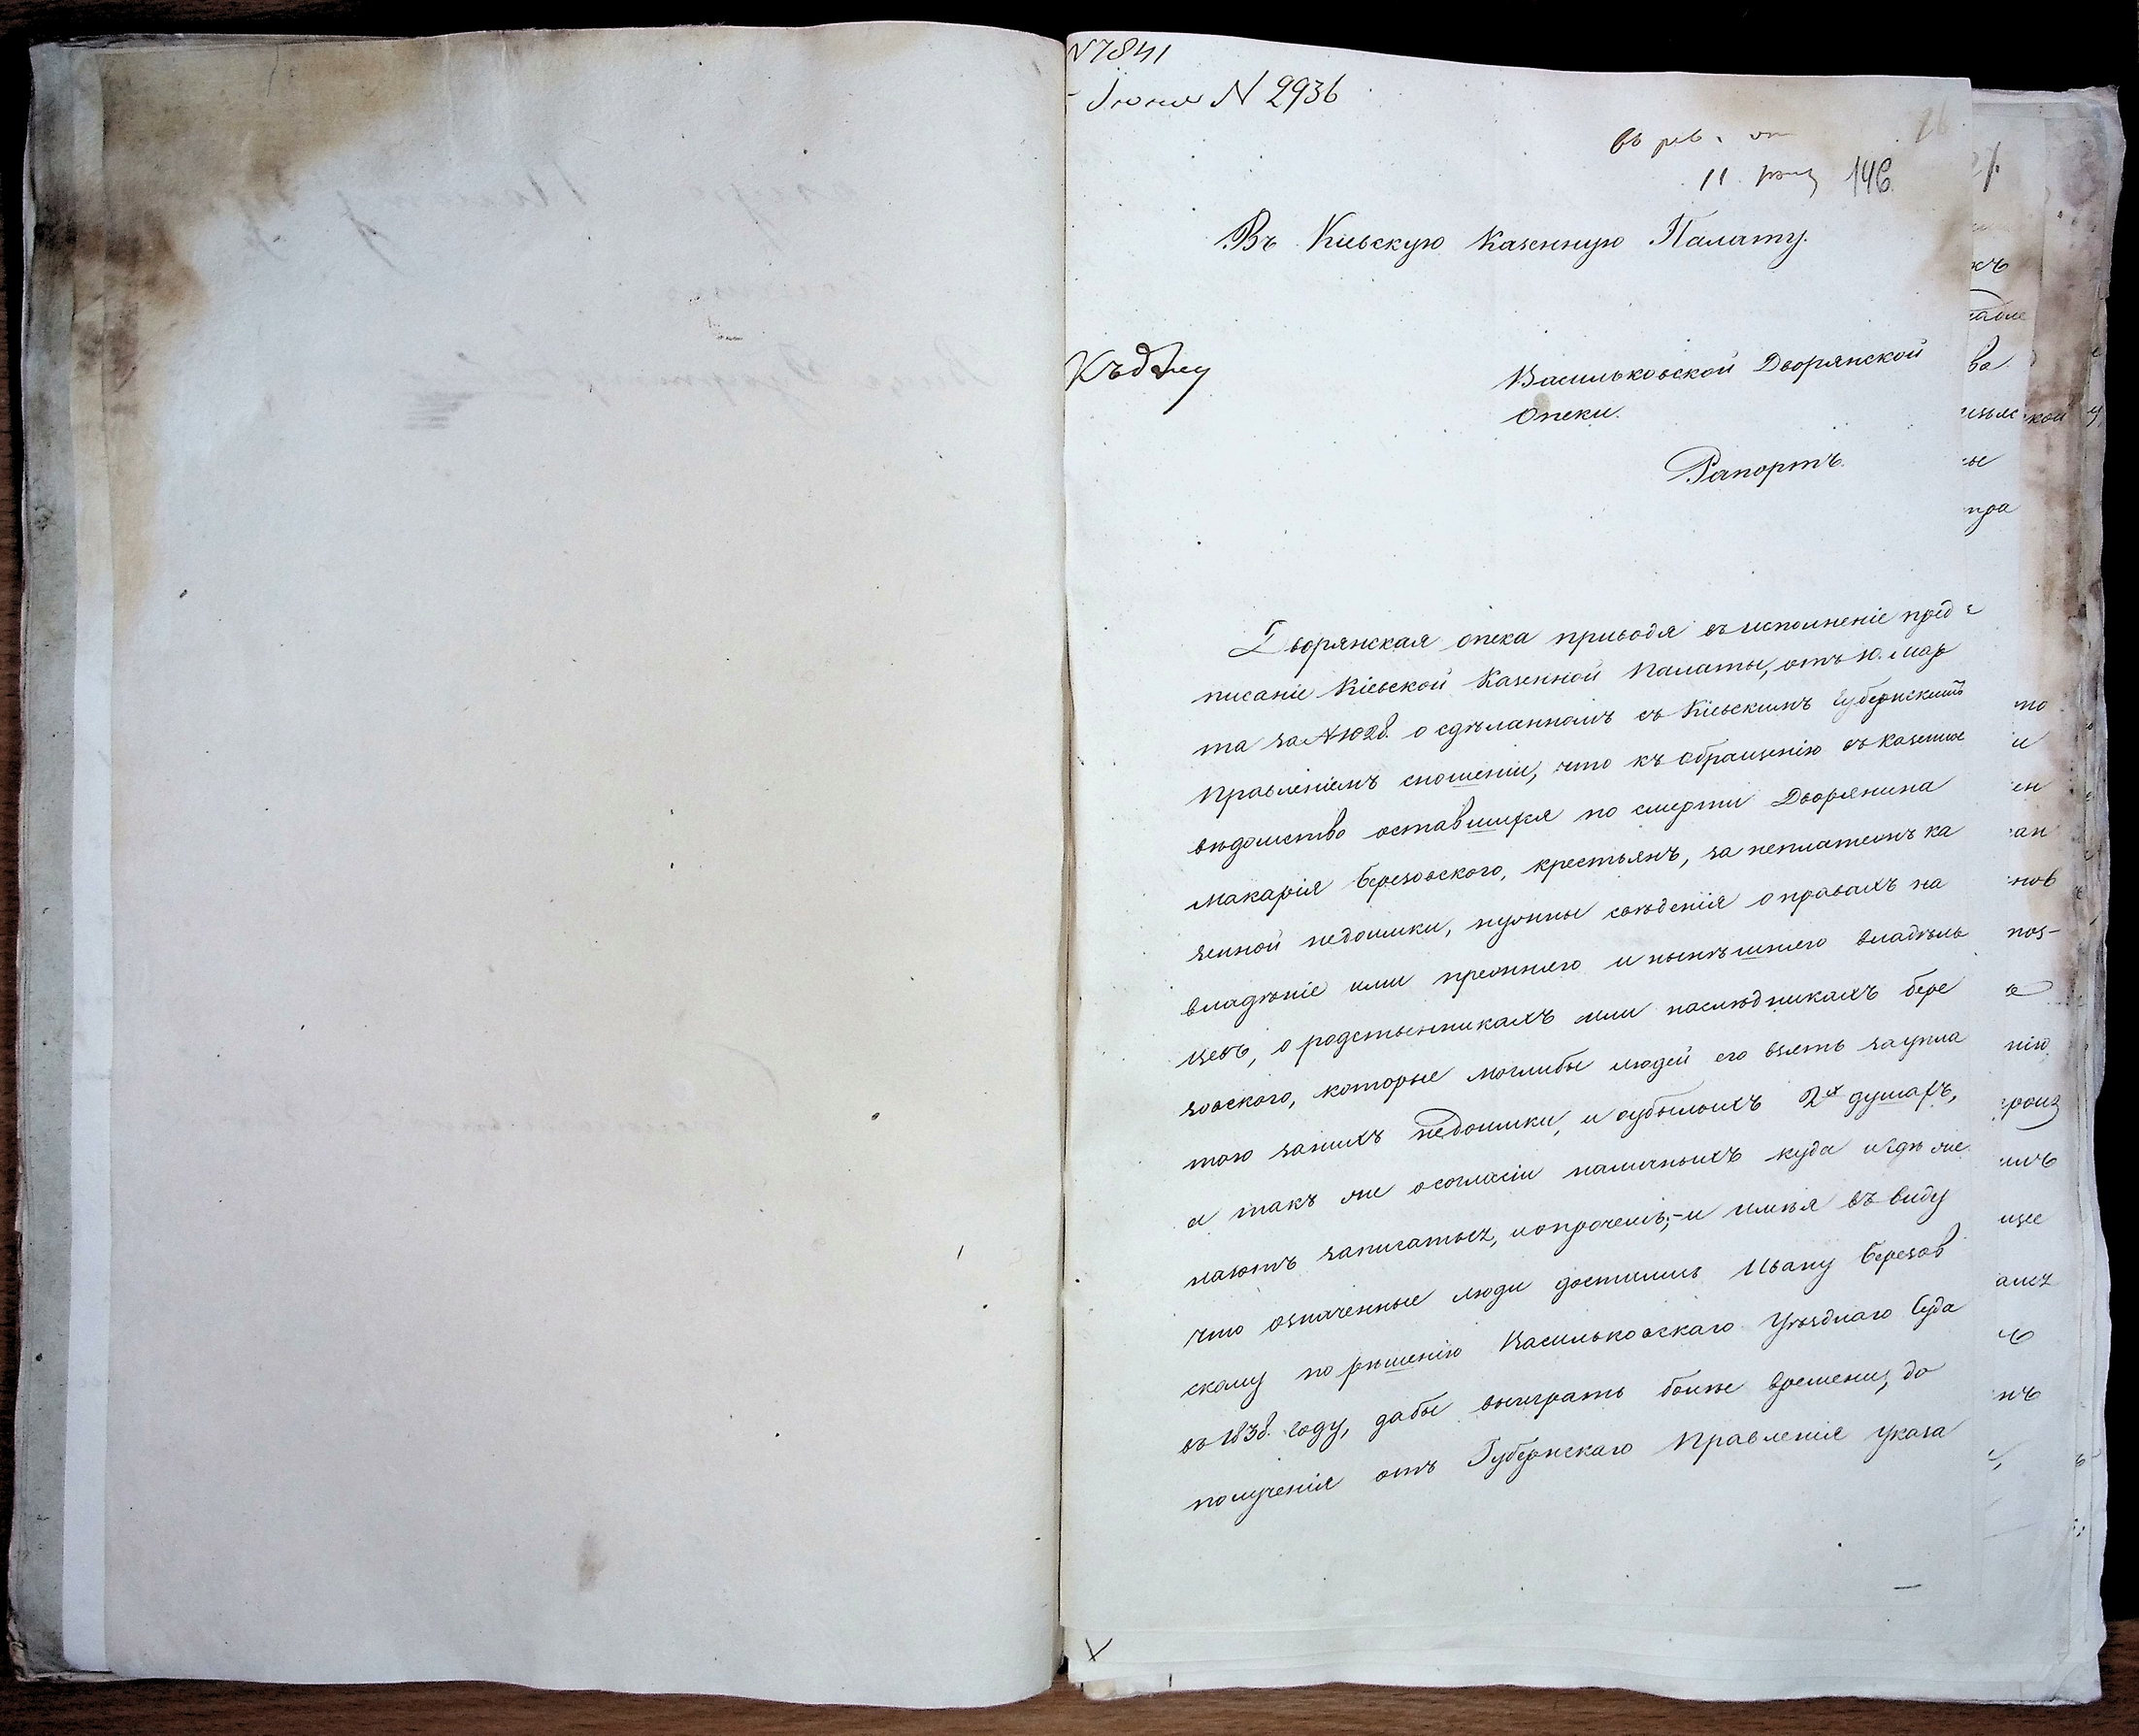 N 7841
Іюня N 2936
26
въ рев. от
11 146
Въ Кіевскую Казенную Палату.
Къ дѣлу
Васильковской Дворянской
Опеки.
Рапортъ.
Дворянская опека приводя въ исполненіе пред
писаніе Кіевской Казенной Палаты, отъ 10. Мар
та за N 1028. о сдѣланномъ съ Кіевскимъ Губернскимъ
Правленіемъ сношеніи, что къ обращенію въ казенное
вѣдомство оставшихся по смерти Дворянина
Макарія Березовского, крестьянъ, за неплатежъ ка
зенной недоимки, нужны свѣденія о правахъ на
владѣніе ими прежняго и нынѣшнего владѣль
цевъ, о родственникахъ или наслѣдникахъ Бере
зовского, которые моглибы людей его взять за упла
тою за нихъ недоимки, и о убылыхъ 2х душахъ,
а такъ же о согласіи наличныхъ куда и гдѣ же
лаютъ записатьсь, и о прочемъ;- и имѣя въ виду
что означенные люди достались Ивану Березов
скому по рѣшенію Васильковскаго Уѣзднаго Суда
въ 1838. году, дабы выиграть болѣе времени, до
полученія отъ Губернскаго Правленія указа